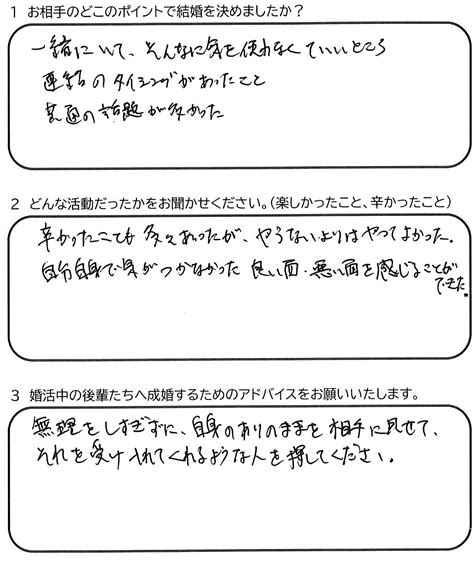 1 お相手のどこのポイントで結婚を決めましたか？
一緒にいて、そんなに気を使わなくていいところ
連絡のタイミングがあったこと
共通の話題が多かった
2 どんな活動だったかをお聞かせください。（楽しかったこと、辛かったこと）
辛かったことも多々あったが、やらないよりはやってよかった。
自分自身で気がつかなかった良い面・悪い面を感じることが
できた。
3 婚活中の後輩たちへ成婚するためのアドバイスをお願いいたします。
無理をしすぎずに、自身のありのままを相手に見せて、
それを受け入れてくれるような人を探してください。